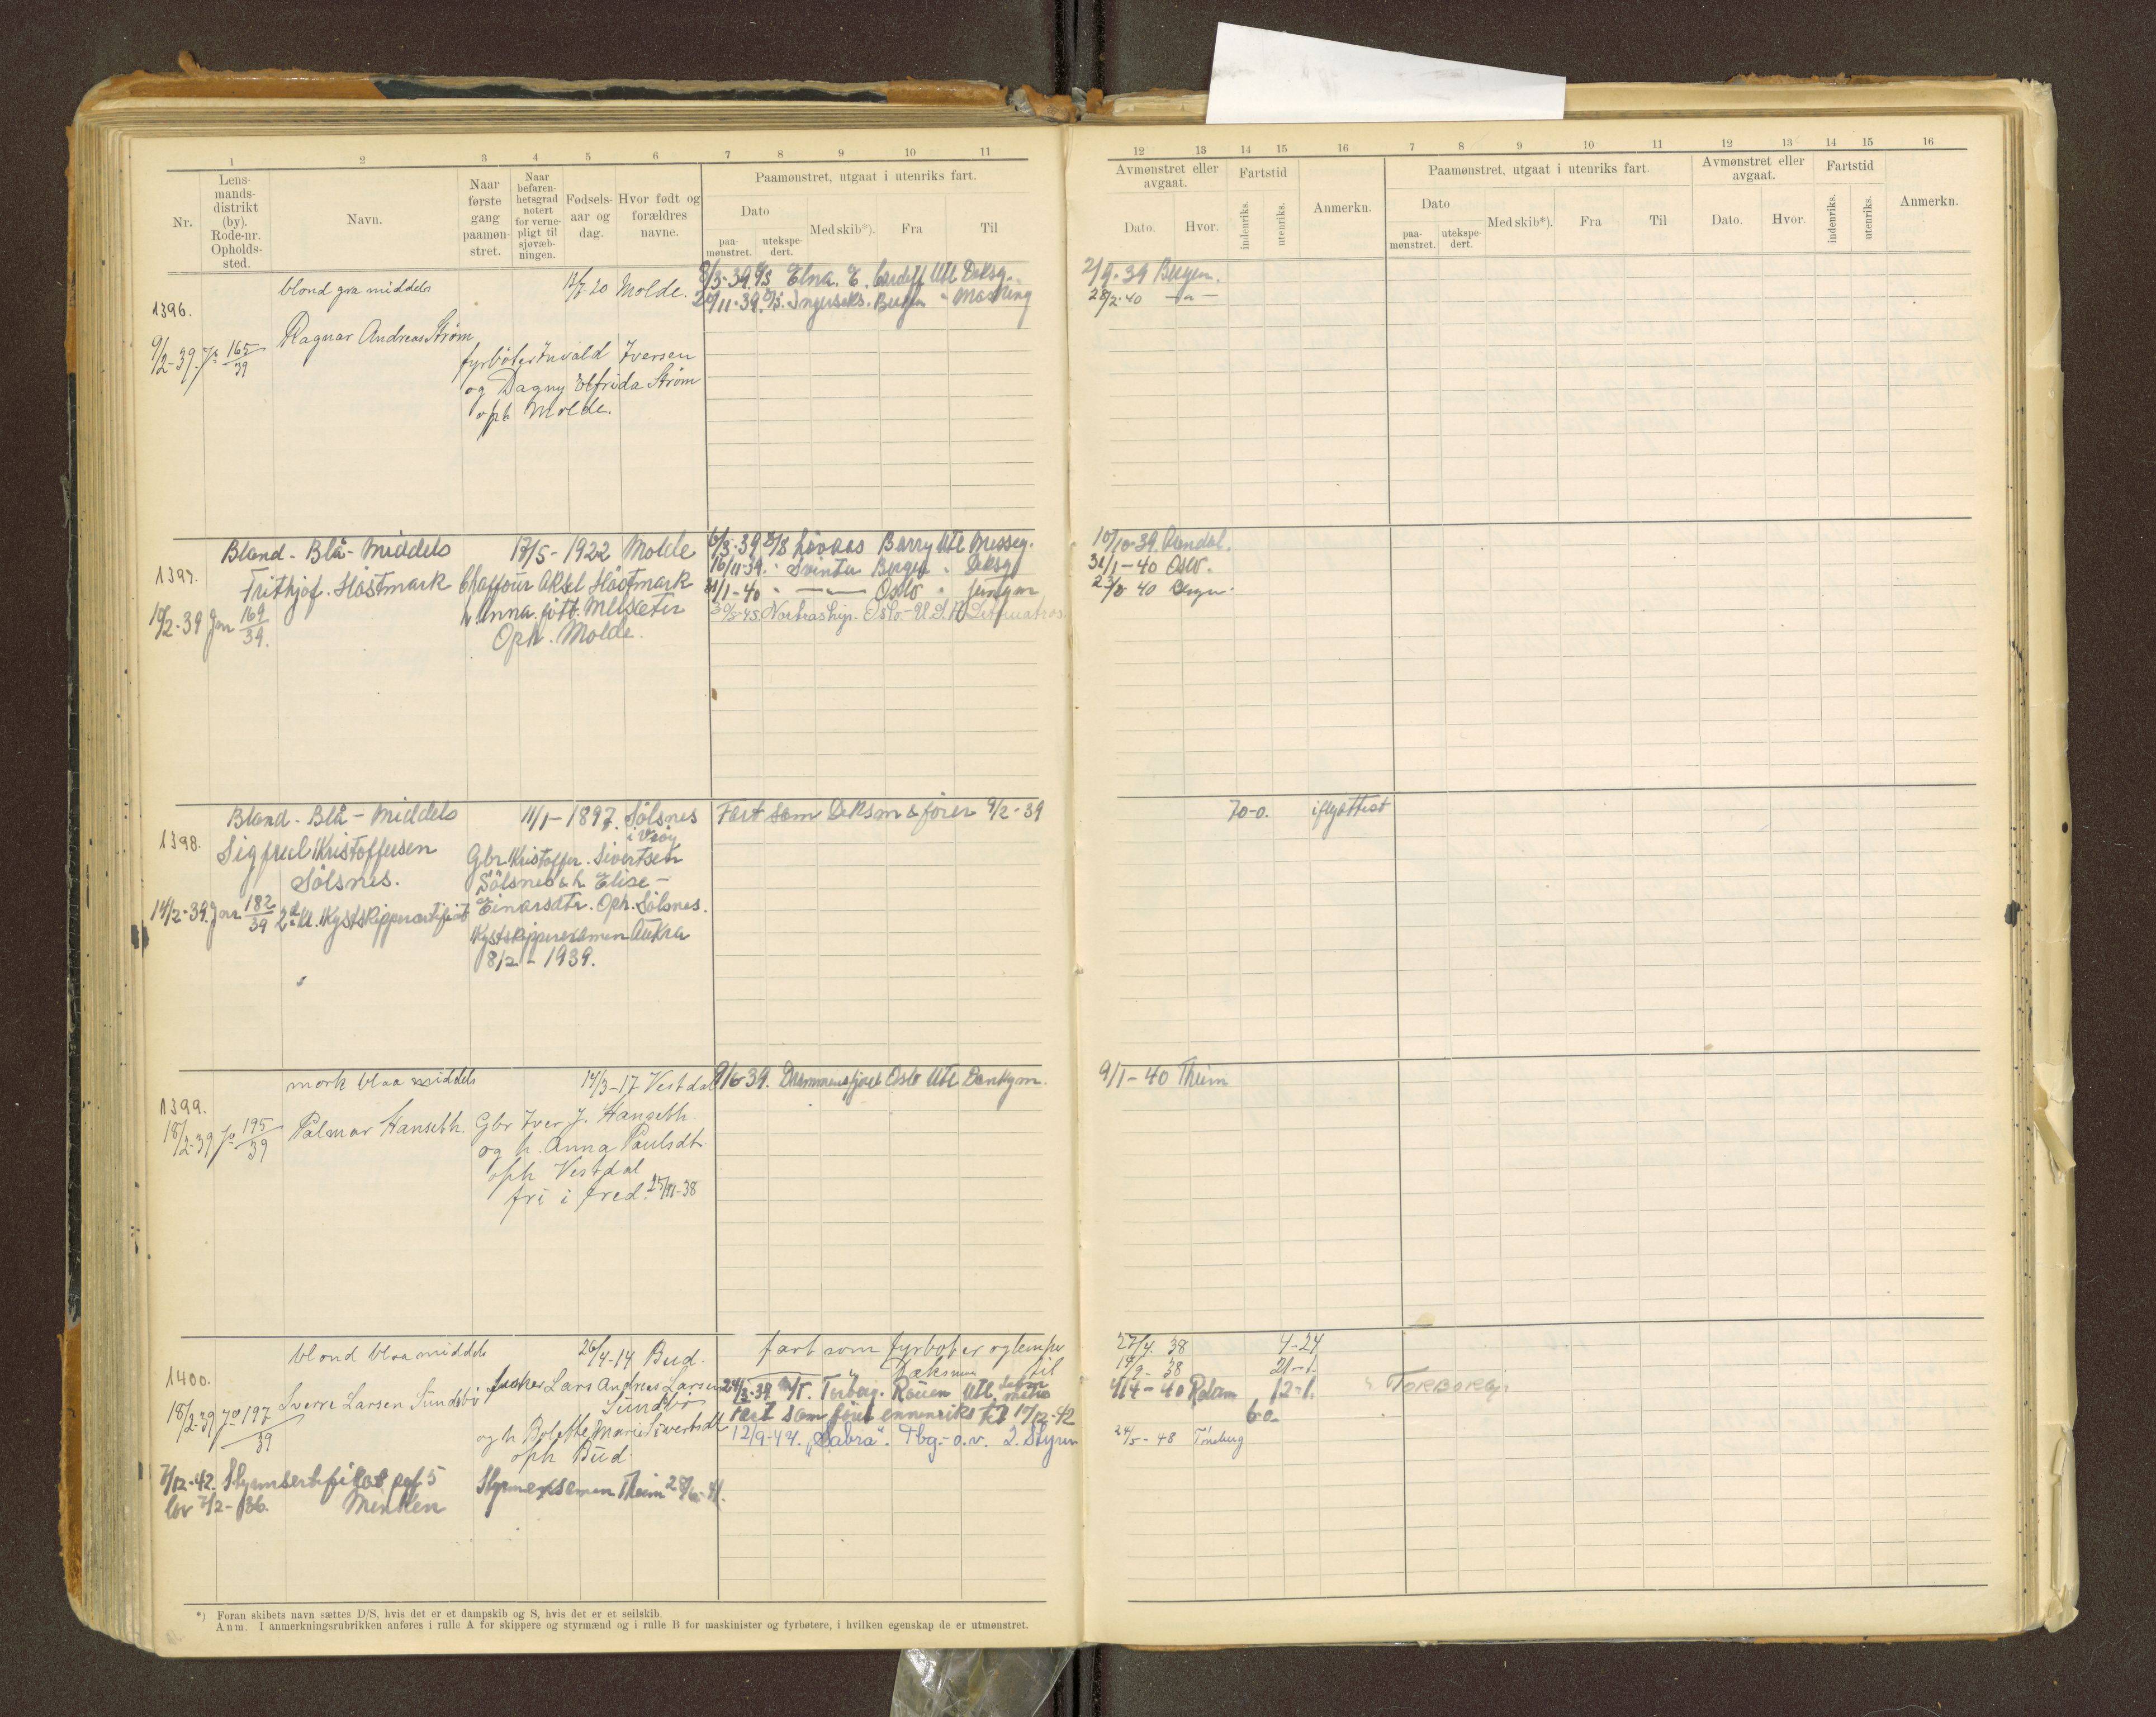 1 2 3 4 5 6 7 8 9 10 11
Nr.
Lens-
mands-
distrikt
(by).
Rode-nr.
Opholds-
sted.
Navn.
Naar
første
gang
paamøn-
stret.
Naar
befaren-
hetsgrad
notert
for verne-
pligt til
sjøvæb-
ningen.
Fødsels-
aar og
dag.
Hvor født og
forældres
navne.
Paamønstret, utgaat i utenriks fart.
Dato
paa-
mønstret.
utekspe-
dert.
Med skib*).
Fra
Til
12 13 14 15 16 7 8 9 10 11 12 13 14 15 16
Avmønstret eller
avgaat.
Dato.
Hvor.
Fartstid
indenriks.
utenriks.
Anmerkn.
Paamønstret, utgaat i utenriks fart.
Dato
paa-
mønstret.
utekspe-
dert.
Med skib*).
Fra
Til
Avmønstret eller
avgaat.
Dato.
Hvor.
Fartstid
indenriks.
utenriks.
Anmerkn.
1396.
blond gra middels
Molde.
8/3-39 D/S Elna. E. Cardiff Utl Deksg.
11-39. Bergen
2/9-39 Bergen.
28/2-40 —„—
Ragnar Andreas Strøm
9/2-39. Jo 165/39
fyrbøter Invald Iversen
og Dagny Elfrida Strøm
oph Molde.
1397.
Blond - Blå - Middels
17/5 - 1922 Molde
6/3-39 D/S Løvaas Barry Utl Messeg.
10/10-39. Arendal.
Frithjof. Hästmark
Chafföur Aksel Hästmark
16/11-39. " Svinta Bergen " Deksg
31/1-40 Oslo.
10/2-39 Jnr 169/39.
h. Anna. fött. Melsæter
31/1-40 " —„— Oslo " Jungm
23/3-40 Bergen.
Oph. Molde.
30/5-45 Nortraship. Oslo.-
1398.
Blond - Blå - Middels
11/1 - 1897. Sölsnes
i Vsöy
Fart som Deksm & förer 9/2-39
70-0. iflg attest
Sigfred Kristoffersen
Sölsnes.
Gbr Kristoffer. Sivertsen
Sölsnes & h Elise -
Einarsdtr. Oph. Sölsnes.
14/2-39. Jnr 182/39 2den Kl. Kystskippercertifikat
Kystskipperexamen Aukra
8/2 - 1939.
1399.
mork blaa middels
14/3-17 Vestdal
9/6-39. Drammensfjord Oslo Utl Donkym.
9/1-40 Thiem
18/2-39 Jo 195/39
Palmar Hanseth.
Gbr Iver J. Hanseth
og h. Anna Paulsdtr
oph Vestdal
fri i fred. 25/11-38
1400.
blond blaa middels
26/4-14 Bud.
fart som fyrbøter og lemper
27/4. 38 4-24
—„— Dæksm til
14/9-38 21-1.
Sverre Larsen Sundsbö
fisker Lars Andreas Larsen
Sundbö
24/3-39 M/T. Torborg. Rouen Utl.
4/4-40 Rdam 12-1.
TORBORG
18/2-39 Jo 197/39
fart som förer ennenriks til 17/12-42
6-0.
og h Bolette Marie Sivertsdt
oph Bud
12/9-47. „Sabra". Tbg.-o.v. 2. Styrm
24/5-48 Tönsberg
7/12-42. Styrmsertifikat pgf. 5
lov 7/2-36. Menken
Styrmeksamen Theim
*) Foran skibets navn sættes D/S, hvis det er et dampskib og S, hvis det er et seilskib.
Anm. I anmerkningsrubrikken anføres i rulle A for skippere og styrmænd og i rulle B for maskinister og fyrbøtere, i hvilken egenskap de er utmønstret.